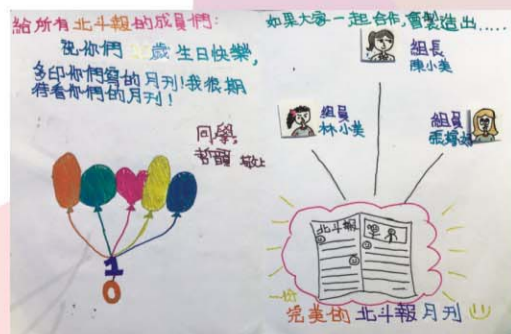 給所有北斗報的成員們：
祝你們 歲生日快樂，
多印你們寫的月刊！我很期
待看你們的月刊！
同學，
敬上
10
如果大家一起合作，會製造出.....
組長
陳小美
組員
林小美
組員
北斗報
一份
完美的北斗報月刊